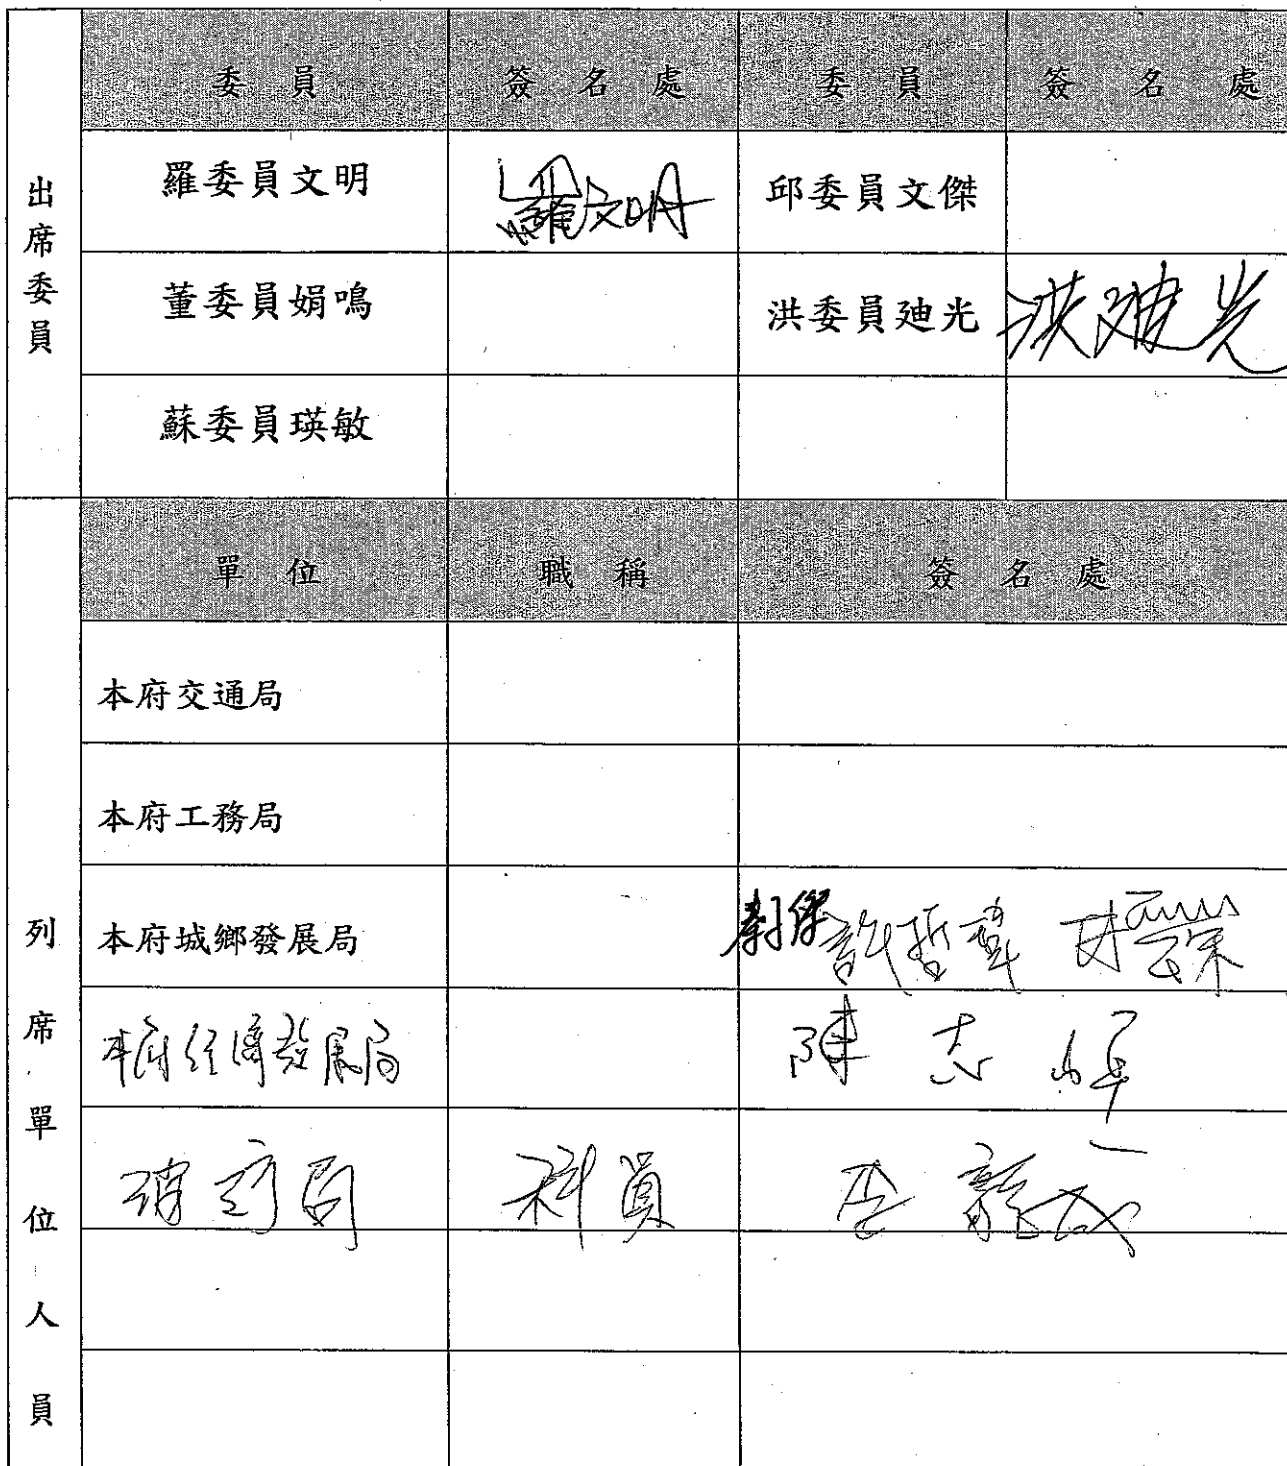 出席委員
委員 簽名處 委員 簽名處
羅委員文明 羅文明 邱委員文傑
董委員娟鳴 洪委員迪光 洪迪光
蘇委員瑛敏
列席單位人員
單位 職稱 簽名處
本府交通局
本府工務局
本府城鄉發展局 許哲瑋
本府經濟發展局 陳志
消防局 科員 李